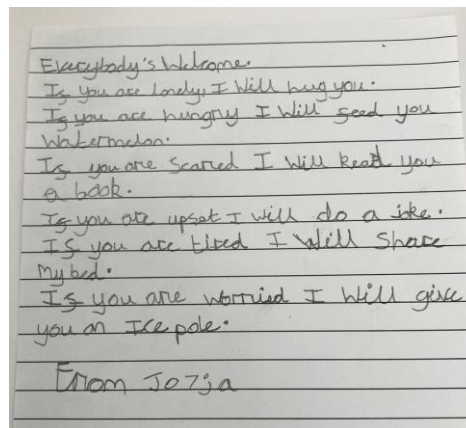 Everybody's Welcome.
If you are lonely, I Will hug you.
If you are hungry I Will feed you
Watermelon.
If you are Scared I Will Read you
a book.
If you are upset I will do a joke.
If you are tired I Will Share
My bed.
If you are worried I Will give
you an Ice pole.
From Jozja